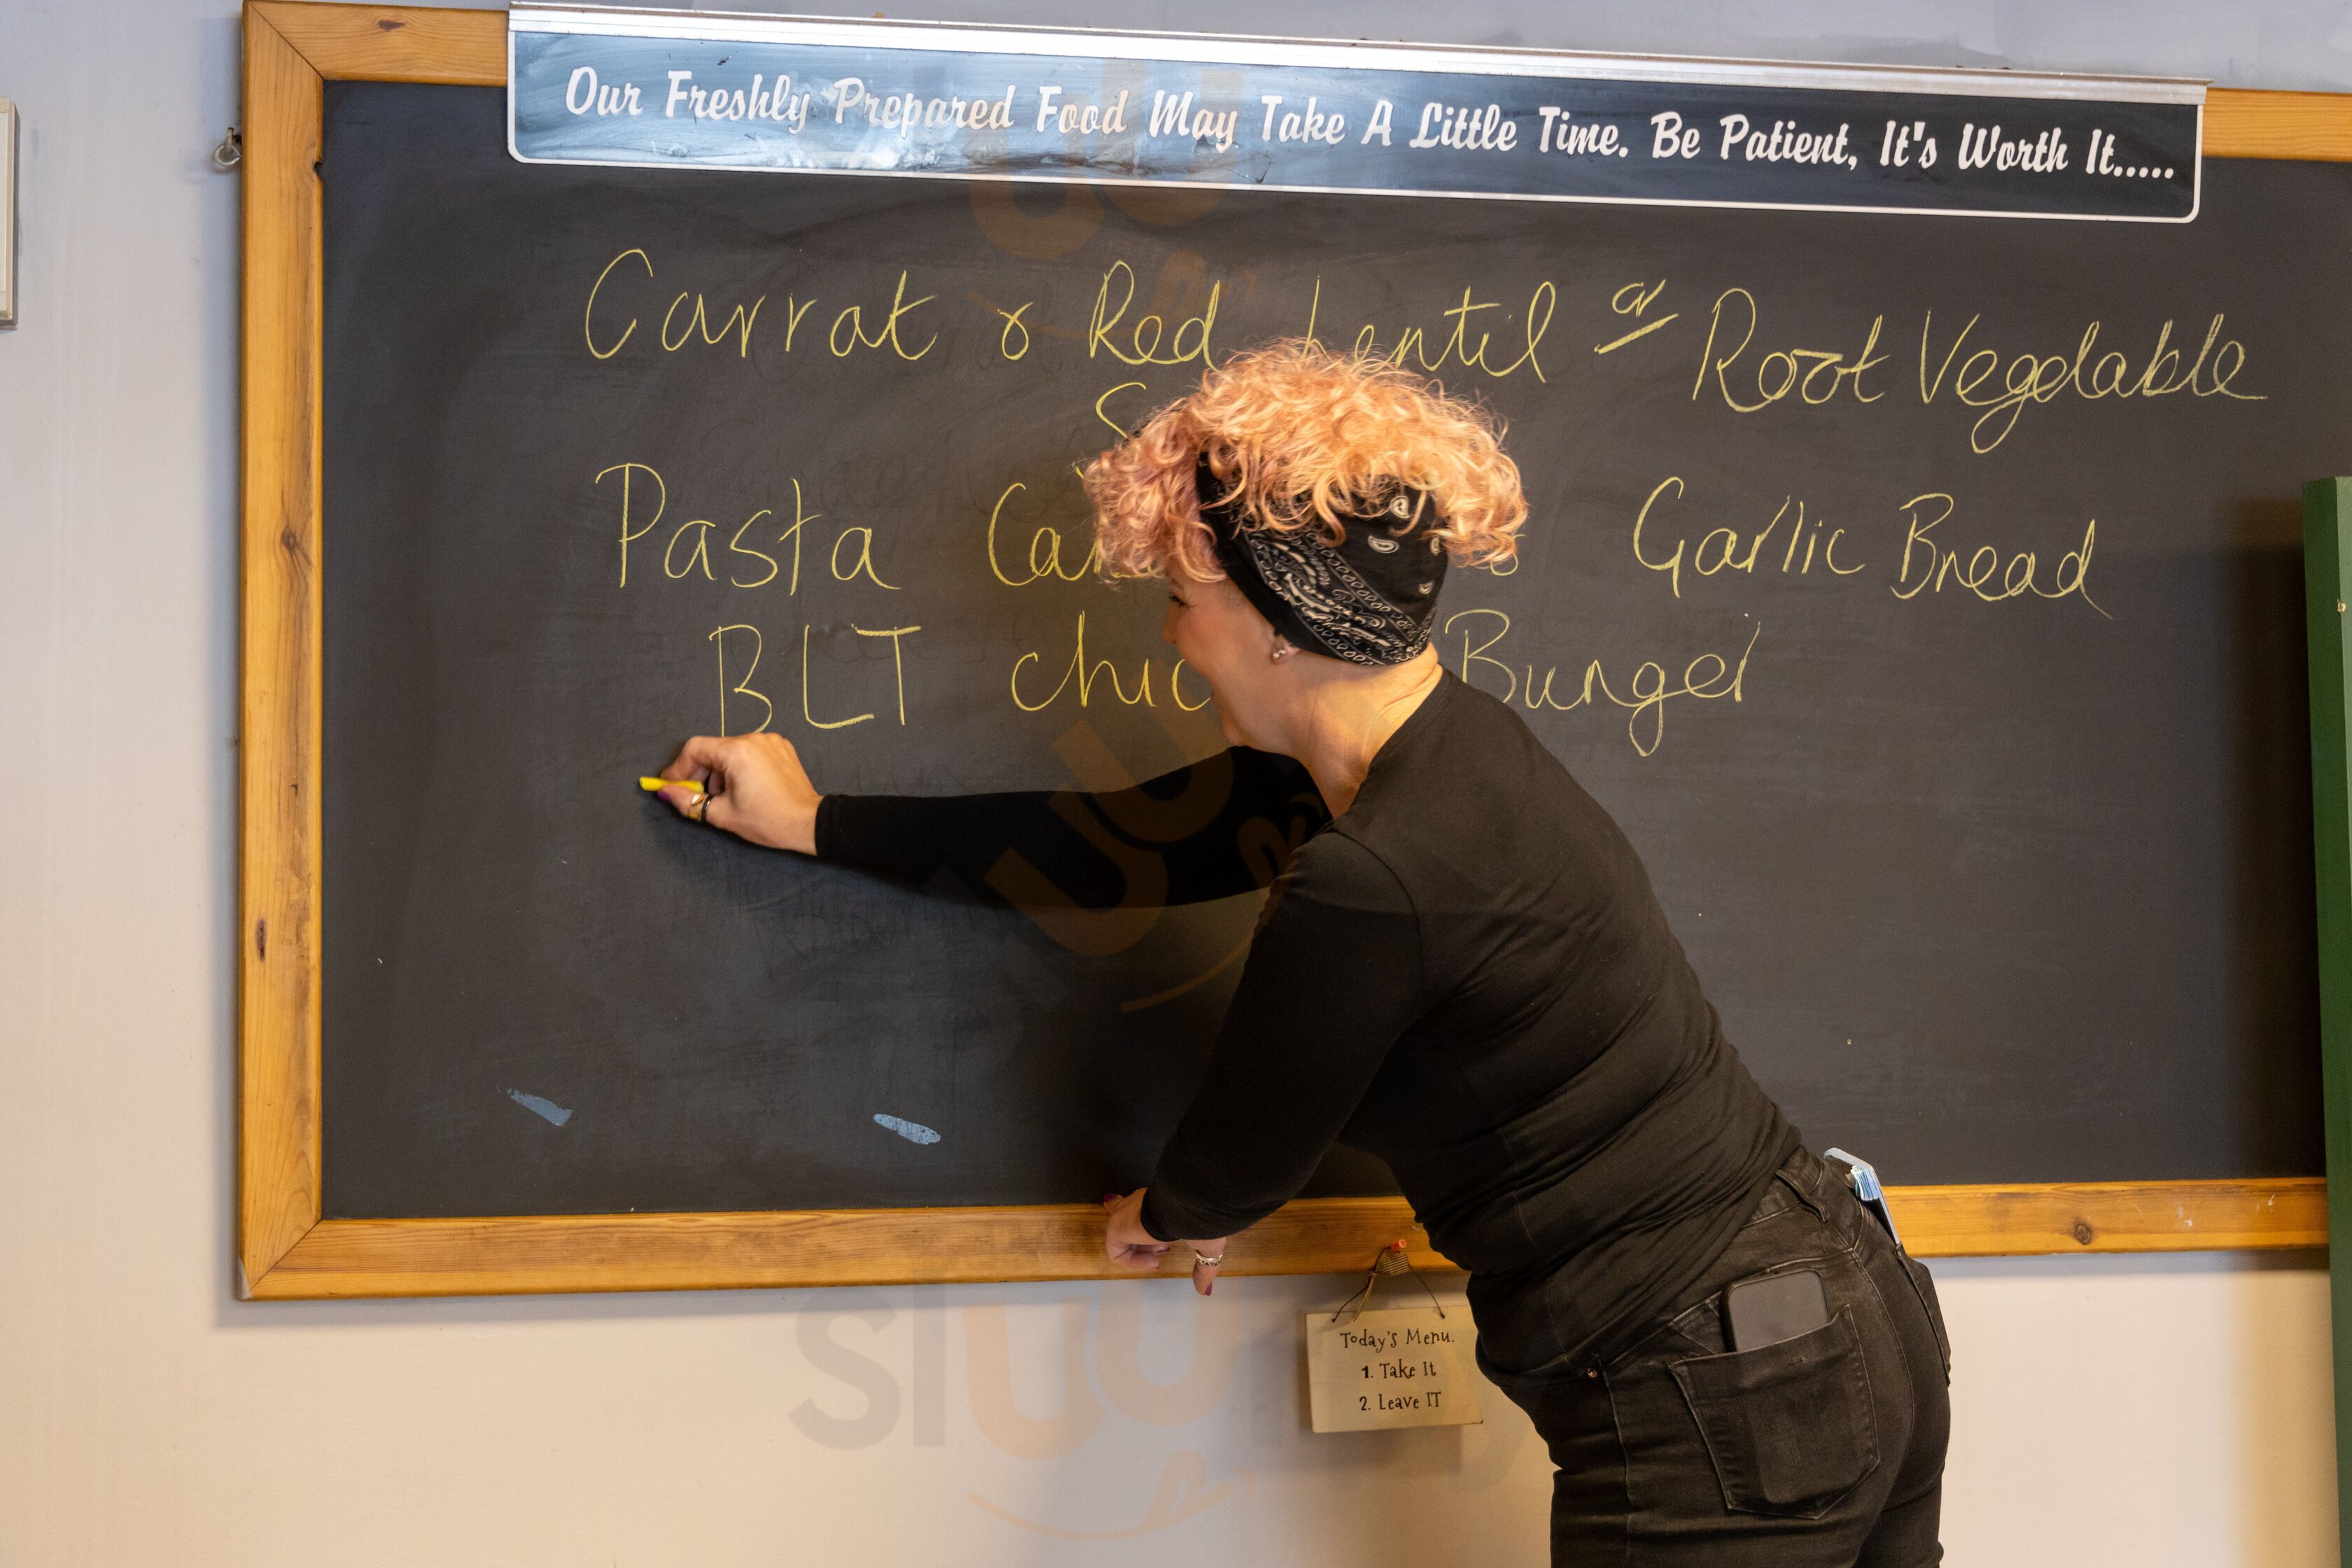 Our Freshly Prepared Food May Take A Little Time. Be Patient, It's Worth It.....
Carrot & Red Lentil or Root Vegetable
Pasta Garlic Bread
BLT Burger
Today's Menu.
1. Take It
2. Leave IT